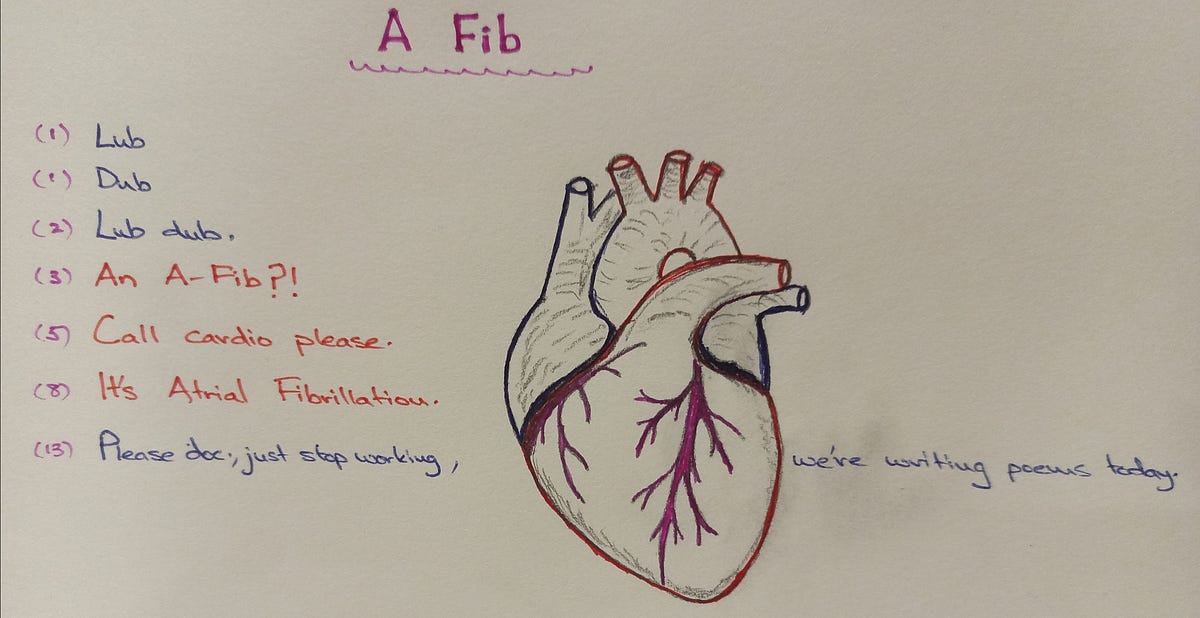 A Fib
(1) Lub
(1) Dub
(2) Lub dub.
(3) An A-Fib?!
(5) Call cardio please.
(8) It's Atrial Fibrillation.
(13) Please doc., just stop working, we're writing poems today.